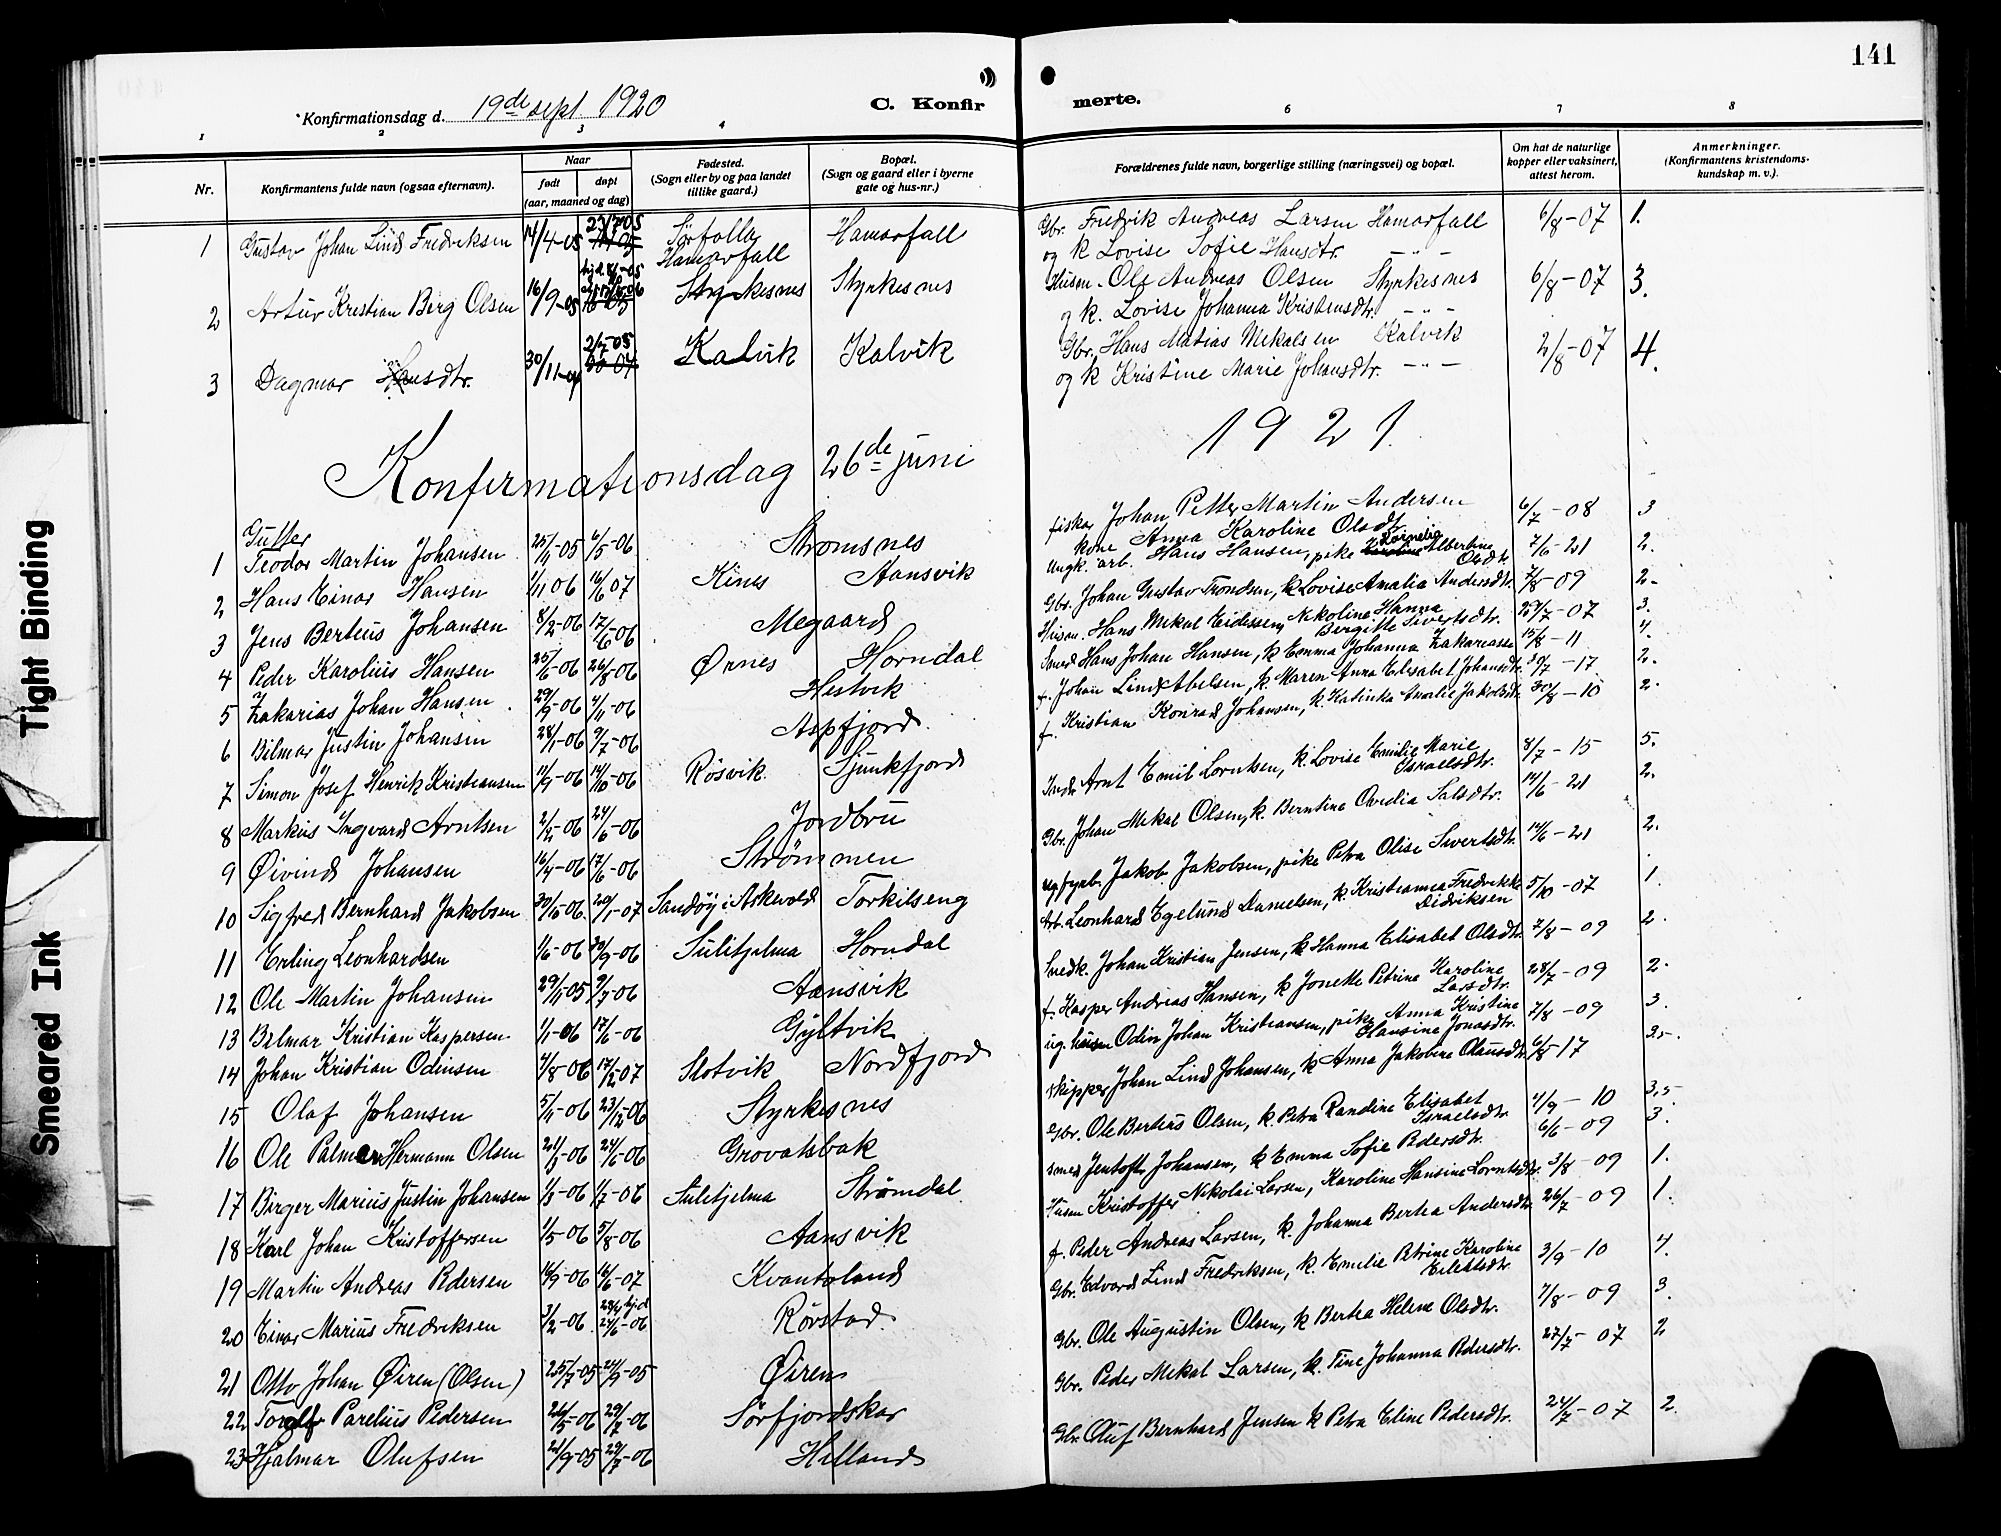 141
Konfirmationsdag d. 19de sept. 1920
C. Konfirmerte.
1 2 3 4 6 7 8
Nr.
Konfirmantens fulde navn (ogsaa efternavn).
Naar
født døpt
(aar, maaned og dag)
Fødested.
(Sogn eller by og paa landet
tillike gaard.)
Bopæl.
(Sogn og gaard eller i byerne
gate og hus-nr.)
Forældrenes fulde navn, borgerlige stilling (næringsvei) og bopæl.
Om hat de naturlige
kopper eller vaksinert,
attest herom.
Anmerkninger.
(Konfirmantens kristendoms-
kundskap m. v.).
1 Gustav Johan Lind Fredriksen 14/4-05 Sørfolla Hamarfall Hamarfall Gbr. Fredrik Andreas Larsen Hamarfall 6/8-07 1.
og k Lovise Sofie Hansdtr. -"-
2 Artur Kristian Berg Olsen 16/9-05 Styrkesnes Styrkesnes Husm. Ole Andreas Olsen Styrkesnes 6/8-07 3.
og k. Lovise Johanna Kristensdtr. -"-
3 Dagmar Hansdtr. 30/11-04 2/7-05 Kalvik Kalvik Gbr. Hans Matias Mikalsen Kalvik 2/8-07 4.
og k Kristine Marie Johansdtr. -"-
Konfirmationsdag 26de juni 1921.
Gutter
1 Teodor Martin Johansen 25/11-05 6/5-06 Strømsnes fisker Johan Petter Martin Andersen 6/7-08 3
kone Anna Karoline Olsdtr.
2 Hans Einar Hansen 1/11 06 16/6 07 Kines Aansvik Ungk. arb. Hans Hansen, pike Kornelia Albertine Olsdtr. 7/6-21 2.
3 Jens Berteus Johansen 8/2-06 17/6-06 Megaard Gbr. Johan Gustav Trondsen, k Lovise Amalia Andersdtr. 7/8-09 2-
4 Peder Karolius Hansen 25/6-06 26/8-06 Ørnes Horndal Husm. Hans Mikal Eidessen, Nikoline Hanna Birgitte Sivertsdtr. 29/7-07 3.
5 Zakarias Johan Hansen 29/9-06 4/11-06 Hestvik Smed Hans Johan Hansen, k Emma Johanna Zakariasdtr 15/8-11 4.
6 Bilmar Justin Johansen 28/1-06 9/7-06 Aspfjord f. Johan Lind Abelsen, k. Maren Anna Elisabet Johansdtr. 30/7-17 2.
7 Simon Josef Henrik Kristiansen 11/9-06 14/10-06 Røsvik Sjunkfjord f. Kristian Konrad Johansen, k. Katinka Amalie Jakobsdtr. 30/8-10 2.
8 Markus Ingvard Arntsen 2/2-06 24/6-06 Jordbru Indr Arnt Emil Lorntsen, k. Lovise Emilie Marie Israelsdtr. 8/7-15 5.
9 Øivind Johansen 16/4-06 17/6-06 Strømmen Gbr. Johan Mikal Olsen, k. Berntine Ovedia Salsdtr. 14/6-21 2.
10 Sigfred Bernhard Jakobsen 30/10-06 20/1-07 Sandøy i Askevold Torkilseng Jakob Jakobsen, pike Petra Olise Sivertsdtr. 14/6-21 2.
11 Erling Leonhardsen 1/6-06 30/9-06 Sulitjelma Horndal Arb. Leonhard Egelund Danielsen, k. Kristianna Fredrikke Didriksen 5/10-07 1.
12 Ole Martin Johansen 29/11-05 9/7-06 Aansvik Snedk. Johan Kristian Jensen, k Hanna Elisabet Olsdtr. 7/8-09 2.
13 Bilmar Kristian Kaspersen 1/1-06 17/6-06 Gyltvik f. Kasper Andreas Hansen, k Jonette Petrine Karoline Larsdtr. 28/7-09 2.
14 Johan Kristian Odinsen 7/8-06 17/2-07 Slotvik Nordfjord ug. husm Odin Johan Kristiansen, pike Anna Kristine Hansine Jonasdtr. 7/8-09 3.
15 Olaf Johansen 5/11-06 23/12-06 Styrkesnes skipper Johan Lind Johansen, k Anna Jakobine Olausdtr. 6/8-17 2.5-.
16 Ole Palmer Hermann Olsen 21/3-06 24/6-06 Grovatsbak Gbr. Ole Berteus Olsen, k. Petra Randine Elisabet Israelsdtr. 4/9-10 3,5-
17 Birger Marius Justin Johansen 1/3-06 1/7-06 Sulitjelma Strømdal smed Jentoft Johansen, k Emma Sofie Pedersdtr. 6/6-09 3.
18 Karl Johan Kristoffersen 1/5-06 5/8-06 Aansvik Husm Kristoffer Nikolai Larsen, Karoline Hansine Lorntsdtr. 3/8-09 1.
19 Martin Andreas Pedersen 16/9-06 16/6-07 Kvantoland f. Peder Andreas Larsen, k. Johanna Bertea Andersdtr. 26/7-09 1.
20 Einar Marius Fredriksen 3/2-06 24/6-06 Rørstad Gbr. Edvard Lind Fredriksen, k. Emilie Petrine Karoline Eilertsdtr. 3/9-10 4.
21 Otto Johan Øiren (Olsen) 25/7-05 24/9-05 Øiren Gbr. Ole Augustin Olsen, k Bertea Helene Olsdtr. 7/8-09 3.
22 Torolf Parelius Pedersen 26/5-06 29/7-06 Sørfjordskar Gbr. Peder Mikal Larsen, k. Tine Johanna Pedersdtr. 27/7-07 2
23 Hjalmar Olufsen 21/9-05 29/7-06 Helland Gbr Oluf Bernhard Jensen k Petra Eline Pedersdtr. 24/7-07 2.
Tight Binding
Smeared Ink